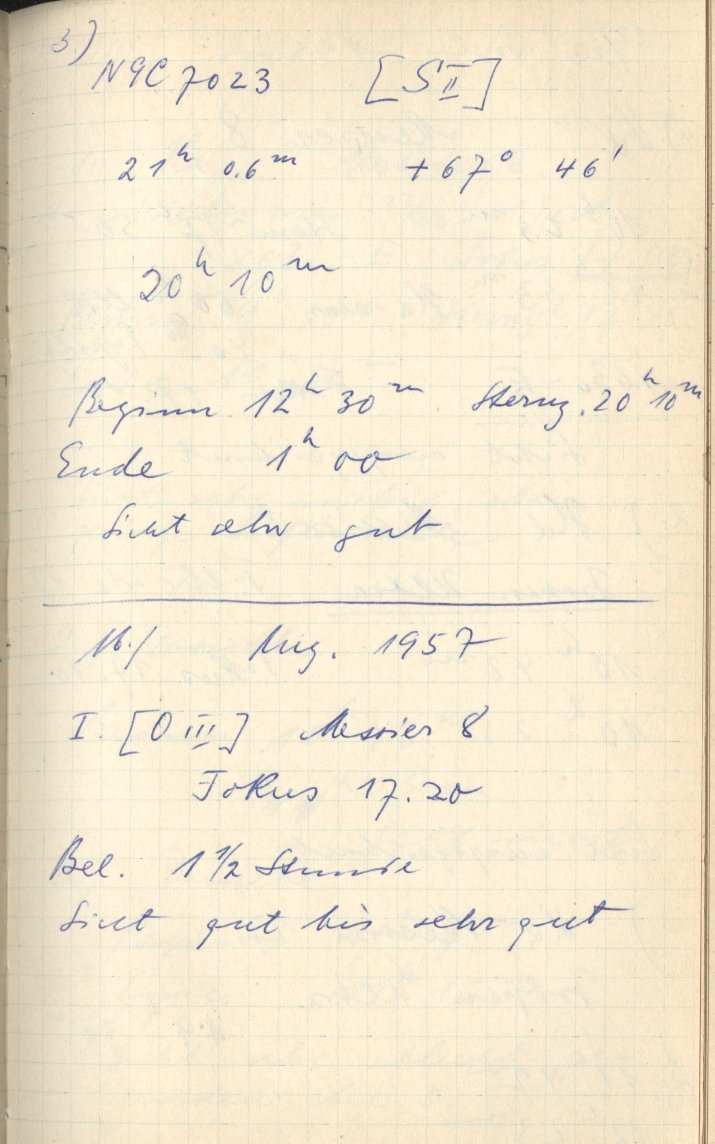 3)
NGC 7023 [SII]
21h 0.6m +67° 46'
20h 10m
Beginn 12h 30m Sternz. 20h 10m
Ende 1h 00
Sicht sehr gut
16./ Aug. 1957
I. [O III] Messier 8
Fokus 17.20
Bel. 1 1/2 Stunde
Sicht gut bis sehr gut